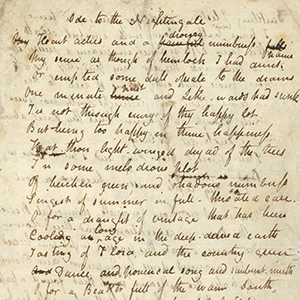 Ode to the Nightingale
drowsy
My Heart aches and a painful numbness falls
pains
My sense as though of hemlock I had drunk
Or emptied some dull opiate to the drains
past
One minute hence and Lethe-wards had sunk
Tis not through envy of thy happy lot
But being too happy in thine happiness
That thou light-winged dryad of the trees
In some melodious plot
Of beechen green and shadows numberless
Singest of summer in full-throated ease.
O for a draught of vintage that has been
Cooling an age in the deep-delved earth
Tasting of Flora and the country green
And Dance, and provencal song and sunburnt mirth
O for a Beaker full of the warm South,